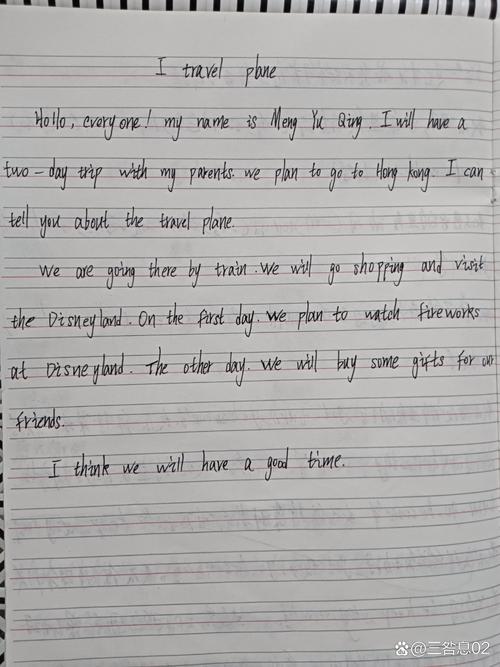 I travel plane
Hollo, everyone! my name is Meng Yu Qing. I will have a
two-day trip with my parents. we plan to go to Hong kong. I can
tell you about the travel plane.
We are going there by train. We will go shopping and visit
the Disneyland. On the first day. We plan to watch fireworks
at Disneyland. The other day. We will buy some gifts for our
friends.
I think we will have a good time.
三咎息02